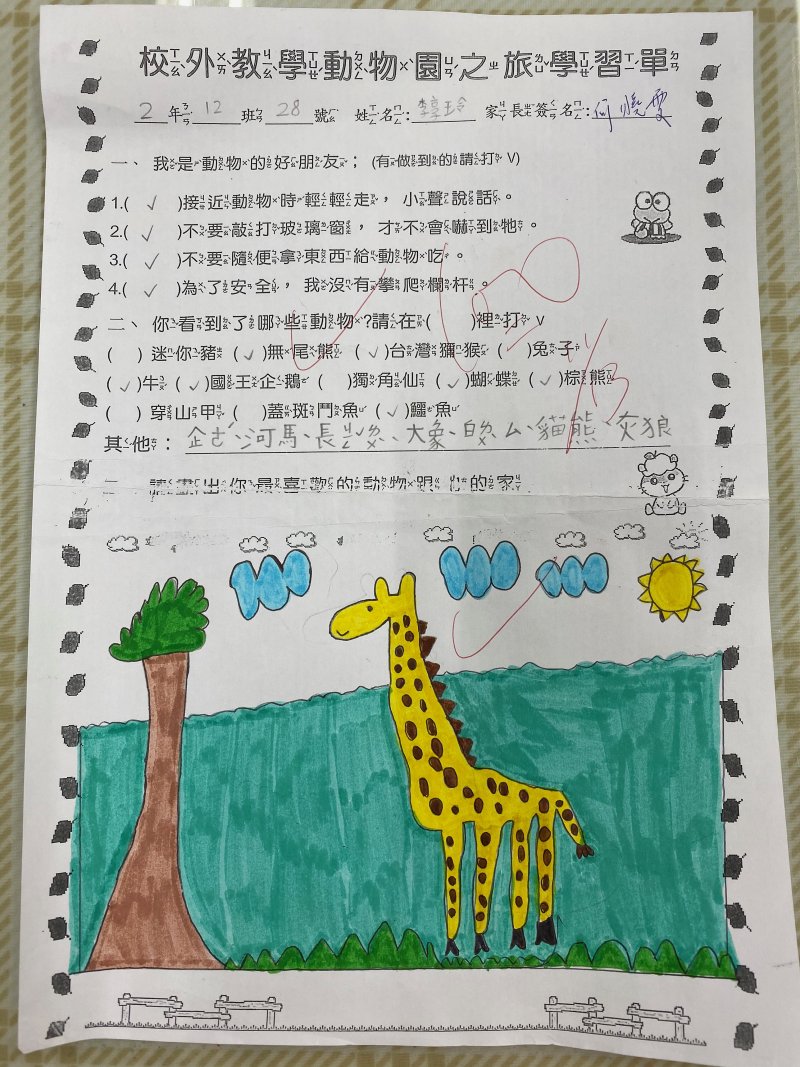 校外教學動物園之旅學習單
2年12班28號 姓名：李玲 家長簽名：何曉雯
一、我是動物的好朋友；(有做到的請打V)
1.( ✓ )接近動物時輕輕走，小聲說話。
2.( ✓ )不要敲打玻璃窗，才不會嚇到牠。
3.( ✓ )不要隨便拿東西給動物吃。
4.( ✓ )為了安全，我沒有攀爬欄杆。
100
二、你看到了哪些動物?請在( )裡打V
( )迷你豬 ( ✓ )無尾熊 ( ✓ )台灣獼猴 ( )兔子
( ✓ )牛 ( ✓ )國王企鵝 ( )獨角仙 ( ✓ )蝴蝶 ( ✓ )棕熊
( )穿山甲 ( )蓋斑鬥魚 ( ✓ )鱷魚
其他：企ㄜˊ、河馬、長ㄐㄧㄥˇ、大象、貓熊、灰狼
三、請畫出你最喜歡的動物跟牠的家